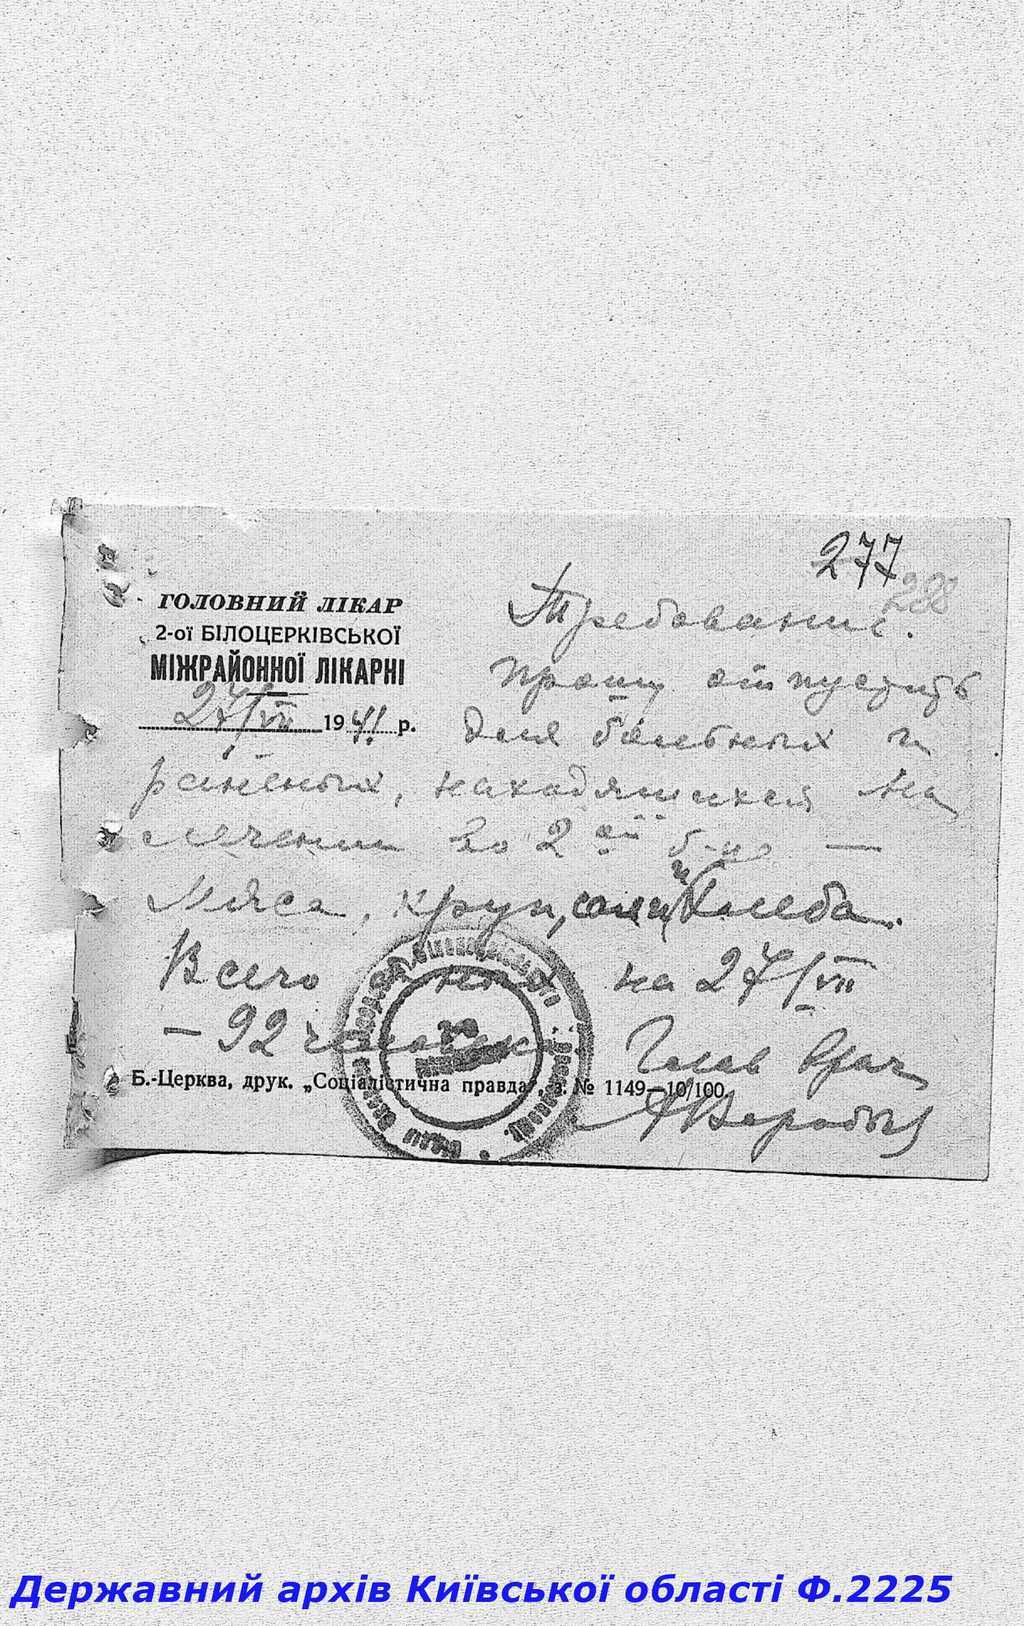 277
288
ГОЛОВНИЙ ЛІКАР
2-ої БІЛОЦЕРКІВСЬКОЇ
МІЖРАЙОННОЇ ЛІКАРНІ
27/VII 1941 р.
Требование.
Прошу отпустить
для больных и
раненых, находящихся на
лечении во 2ой б-це —
Мяса, круп, соли и Хлеба.
Всего на 27/VII
— 92 человека
Глав Врач
Б.-Церква, друк. „Соціалістична правда", з. № 1149—10/100.
Державний архів Київської області Ф.2225